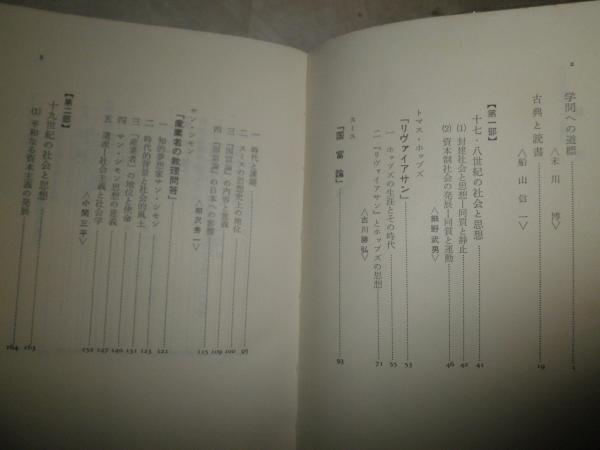 2
学問への道標……1
〈末川 博〉
古典と読書……19
〈船山信一〉
【第一部】
十七・八世紀の社会と思想……41
(1) 封建社会と思想―同質と静止……42
(2) 資本制社会の発展―同質と運動……46
〈細野武男〉
トマス・ホッブズ
『リヴァイアサン』……53
一 ホッブズの生涯とその時代……55
二 『リヴァイアサン』とホッブズの思想……71
〈古川勝弘〉
スミス
『国富論』……93
3
一 時代と課題……95
二 スミスの思想史上の地位……100
三 『国富論』の内容と意義……109
四 『国富論』の日本への影響……115
〈相沢秀一〉
サン・シモン
『産業者の教理問答』……121
一 知的夢想家サン・シモン……123
二 時代的背景と社会的風土……131
三 「産業者」の地位と使命……140
四 サン・シモン思想の意義……147
五 遺産―社会主義と社会学……152
〈小関三平〉
【第二部】
十九世紀の社会と思想……163
(1) 平和なる資本主義の発展……164